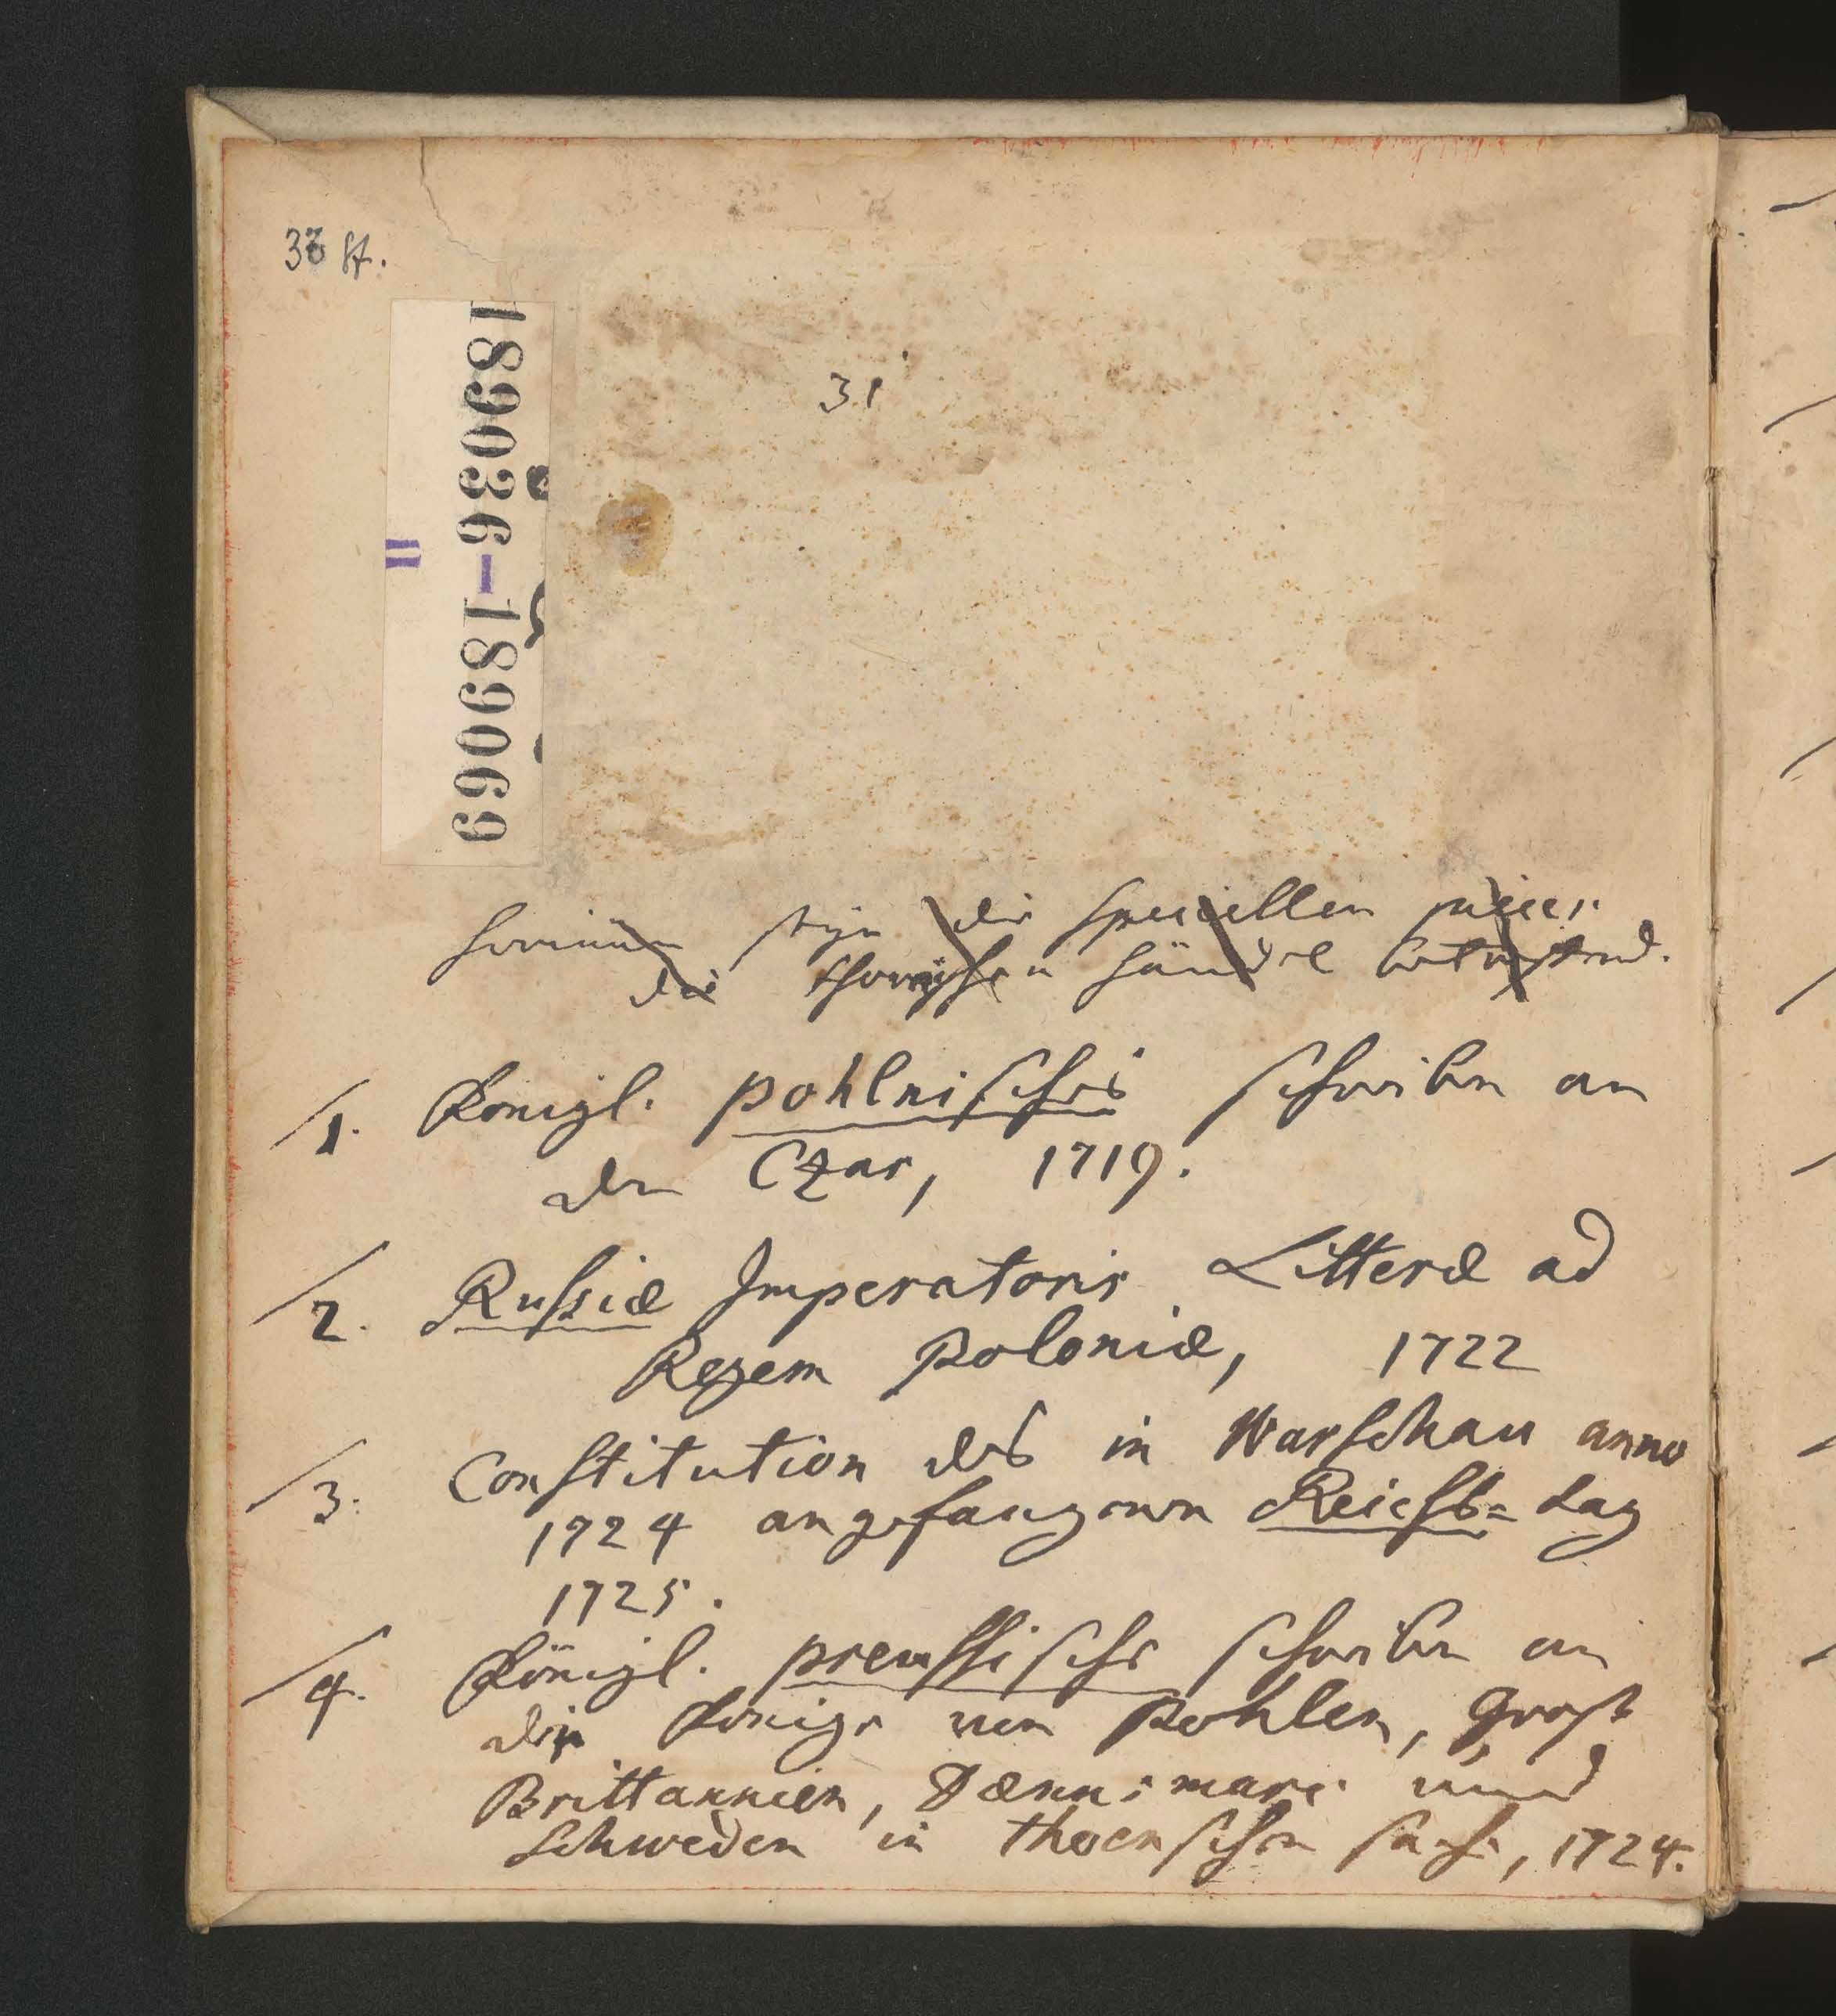 33 St.
31
189036-189069
II
hierinnen seyn die speciellen piecen
die thornischen händel betreffend.
1. Königl. pohlnisches schreiben an
den Czar, 1719.
2. Russiæ Imperatoris Litteræ ad
Regem Poloniæ, 1722
3. Constitution des in Warschau anno
1724 angefangenen Reichs= tag
1725.
4. Königl. preussische schreiben an
die Könige von Pohlen, Groß
Brittannien, Dænnemarc und
Schweden in thornschen sach, 1724.